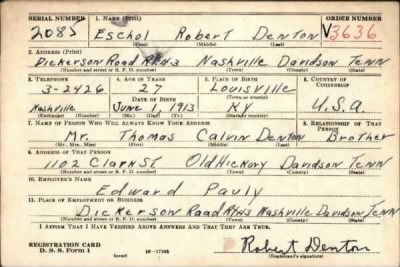 SERIAL NUMBER 1. NAME (Print) ORDER NUMBER
2085 Eschol Robert Denton V3636
(First) (Middle) (Last)
2. ADDRESS (Print)
Dickerson Road Rt#3 Nashville Davidson Tenn
(Number and street or R. F. D. number) (Town) (County) (State)
3. TELEPHONE 4. AGE IN YEARS 5. PLACE OF BIRTH 6. COUNTRY OF CITIZENSHIP
3-2426 27 Louisville
DATE OF BIRTH (Town or county)
Nashville June 1, 1913 KY U.S.A.
(Exchange) (Mo.) (Day) (Yr.) (State or country)
7. NAME OF PERSON WHO WILL ALWAYS KNOW YOUR ADDRESS 8. RELATIONSHIP OF THAT PERSON
Mr. Thomas Calvin Denton Brother
(Mr., Mrs., Miss) (First) (Middle) (Last)
9. ADDRESS OF THAT PERSON
1102 Clark St. Old Hickory Davidson Tenn
(Number and street or R. F. D. number) (Town) (County) (State)
10. EMPLOYER'S NAME
Edward Pauly
11. PLACE OF EMPLOYMENT OR BUSINESS
Dickerson Road Rt#3 Nashville Davidson Tenn
(Number and street or R. F. D. number) (Town) (County) (State)
I AFFIRM THAT I HAVE VERIFIED ABOVE ANSWERS AND THAT THEY ARE TRUE.
REGISTRATION CARD
D. S. S. Form 1 16-17105 Robert Denton
(Registrant's signature)